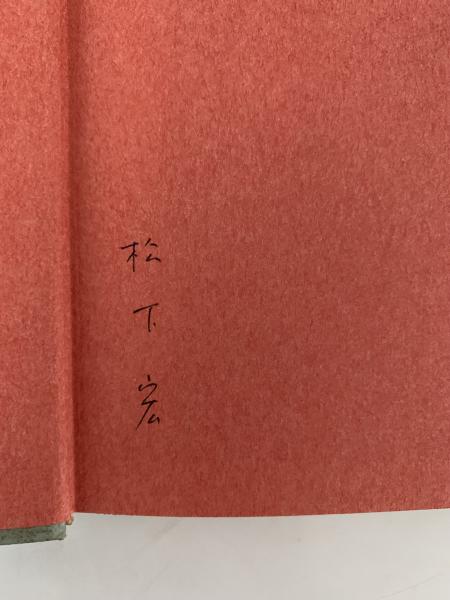 松下宏